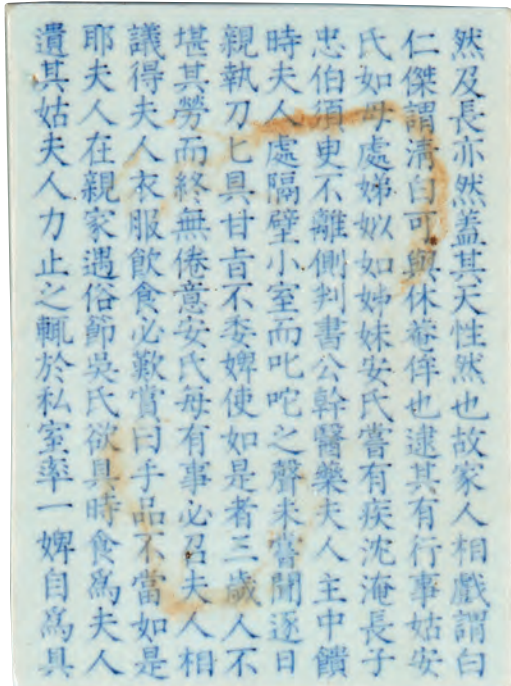 然及長亦然蓋其天性然也故家人相戲謂曰
仁傑謂淸白可與休菴侔也逮其有行事姑安
氏如母處娣姒如姊妹安氏嘗有疾沈淹長子
忠伯須臾不離側判書公幹醫藥夫人主中饋
時夫人處隔壁小室而叱咤之聲未嘗聞逐日
親執刀匕具甘旨不委婢使如是者三歲人不
堪其勞而終無倦意安氏每有事必召夫人相
議得夫人衣服飮食必歎賞曰手品不當如是
耶夫人在親家遇俗節吳氏欲具時食爲夫人
遺其姑夫人力止之輒於私室率一婢自爲具